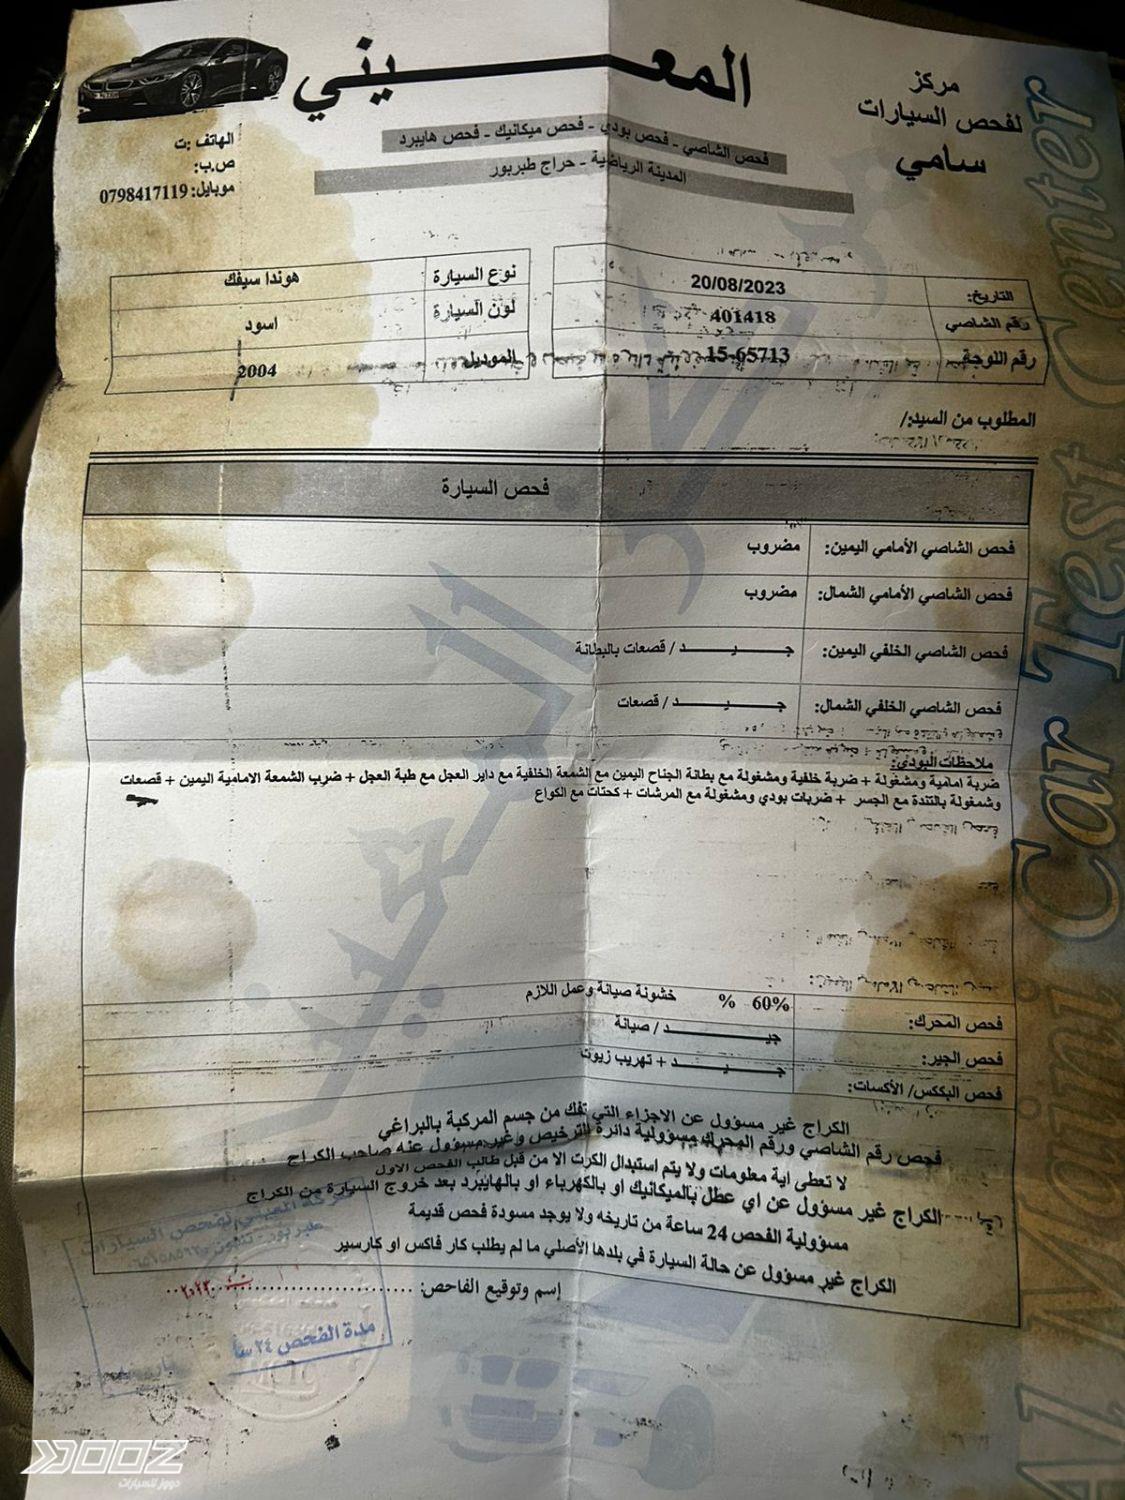 مركز
المعـــــــيني
لفحص السيارات
سامي
فحص الشاصي - فحص بودي - فحص ميكانيك - فحص هايبرد
المدينة الرياضية - حراج طبربور
الهاتف :ت
ص.ب:
موبايل: 0798417119
التاريخ: 20/08/2023 نوع السيارة هوندا سيفك
رقم الشاصي 401418 لون السيارة اسود
رقم اللوحة 15-65713 الموديل 2004
المطلوب من السيد/:
فحص السيارة
فحص الشاصي الأمامي اليمين: مضروب
فحص الشاصي الأمامي الشمال: مضروب
فحص الشاصي الخلفي اليمين: جـــــيـــــد / قصعات بالبطانة
فحص الشاصي الخلفي الشمال: جـــــيـــــد / قصعات
ملاحظات البودي:
ضربة امامية ومشغولة + ضربة خلفية ومشغولة مع بطانة الجناح اليمين مع الشمعة الخلفية مع داير العجل مع طبة العجل + ضرب الشمعة الامامية اليمين + قصعات
وشمغولة بالتندة مع الجسر + ضربات بودي ومشغولة مع المرشات + كحتات مع الكواع
فحص المحرك: 60% % خشونة صيانة وعمل اللازم
فحص الجير: جيـــــــد / صيانة
فحص البككس/ الأكسات: جـــــيـــــد + تهريب زيوت
الكراج غير مسؤول عن الاجزاء التي تفك من جسم المركبة بالبراغي
فحص رقم الشاصي ورقم المحرك مسؤولية دائرة الترخيص وغير مسؤول عنه صاحب الكراج
لا تعطى اية معلومات ولا يتم استبدال الكرت الا من قبل طالب الفحص الاول
الكراج غير مسؤول عن اي عطل بالميكانيك او بالكهرباء او بالهايبرد بعد خروج السيارة من الكراج
مسؤولية الفحص 24 ساعة من تاريخه ولا يوجد مسودة فحص قديمة
الكراج غير مسؤول عن حالة السيارة في بلدها الأصلي ما لم يطلب كار فاكس او كارسير
إسم وتوقيع الفاحص:
المعيني لفحص السيارات
طبربور - تلفون
مدة الفحص ٢٤ سا
Al Maini Car Test Center
DOOZ
دووز للسيارات